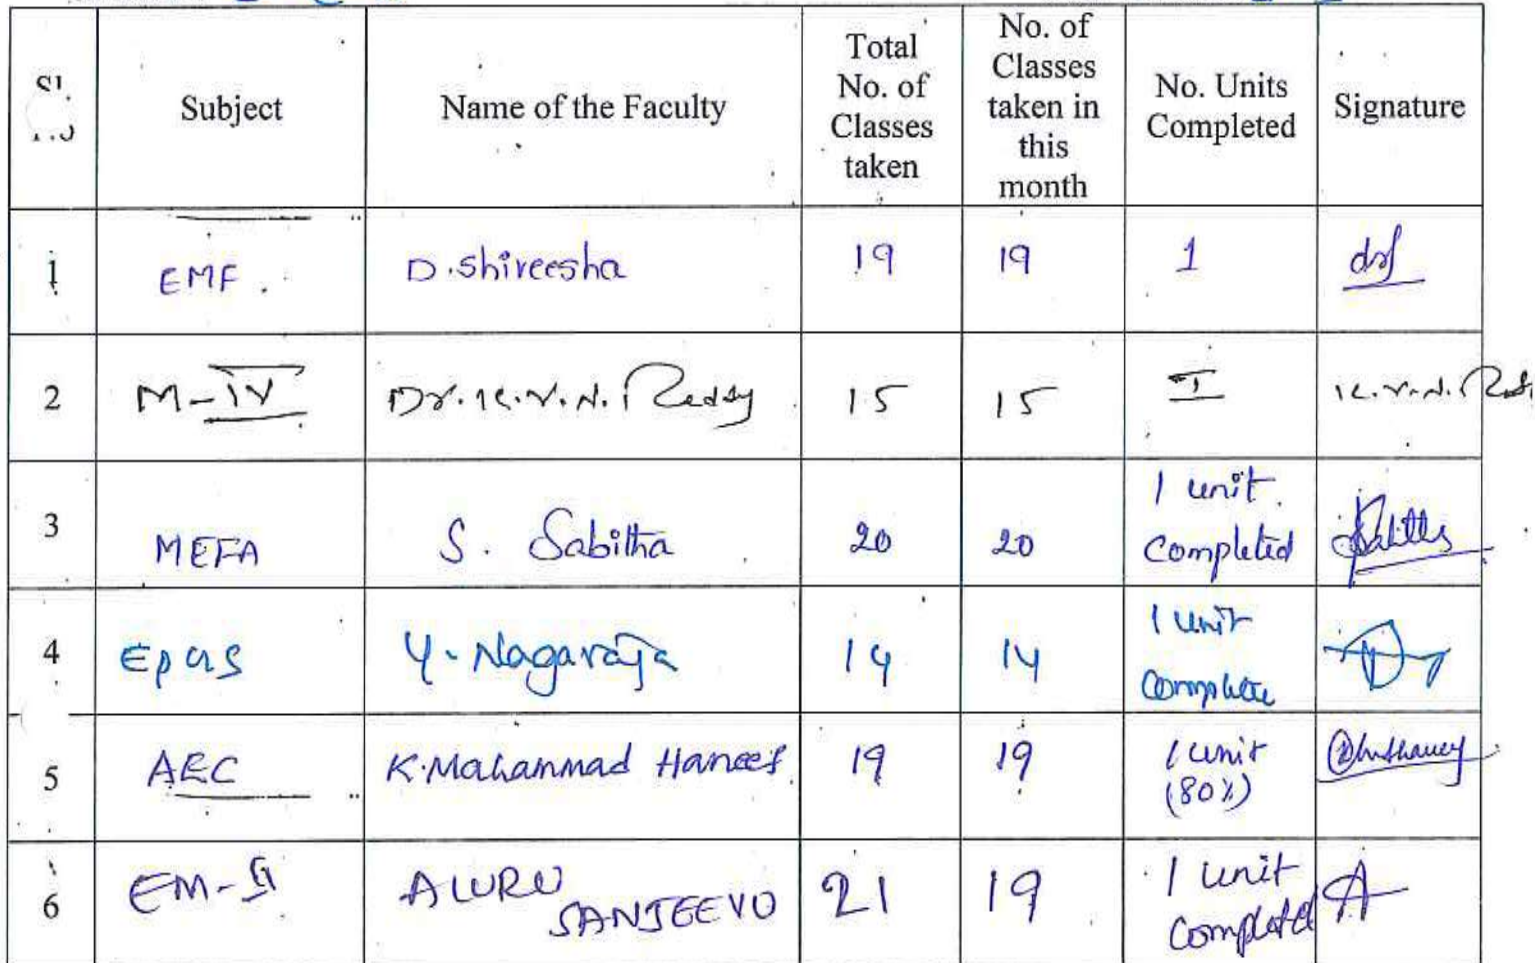 Sl.
No
Subject
Name of the Faculty
Total
No. of
Classes
taken
No. of
Classes
taken in
this
month
No. Units
Completed
Signature
1 EMF. D.Shireesha 19 19 1
2 M-IV Dr. K.V.N. Reddy 15 15 I K.V.N. Reddy
3 MEFA S. Sabitha 20 20 1 unit.
completed
4 Y. Nagaraja 14 14 1 unit
complete
5 AEC K.Mahammad Haneef 19 19 1 unit
(80%)
6 EM-II ALURU
SANJEEVU 21 19 1 unit
completed